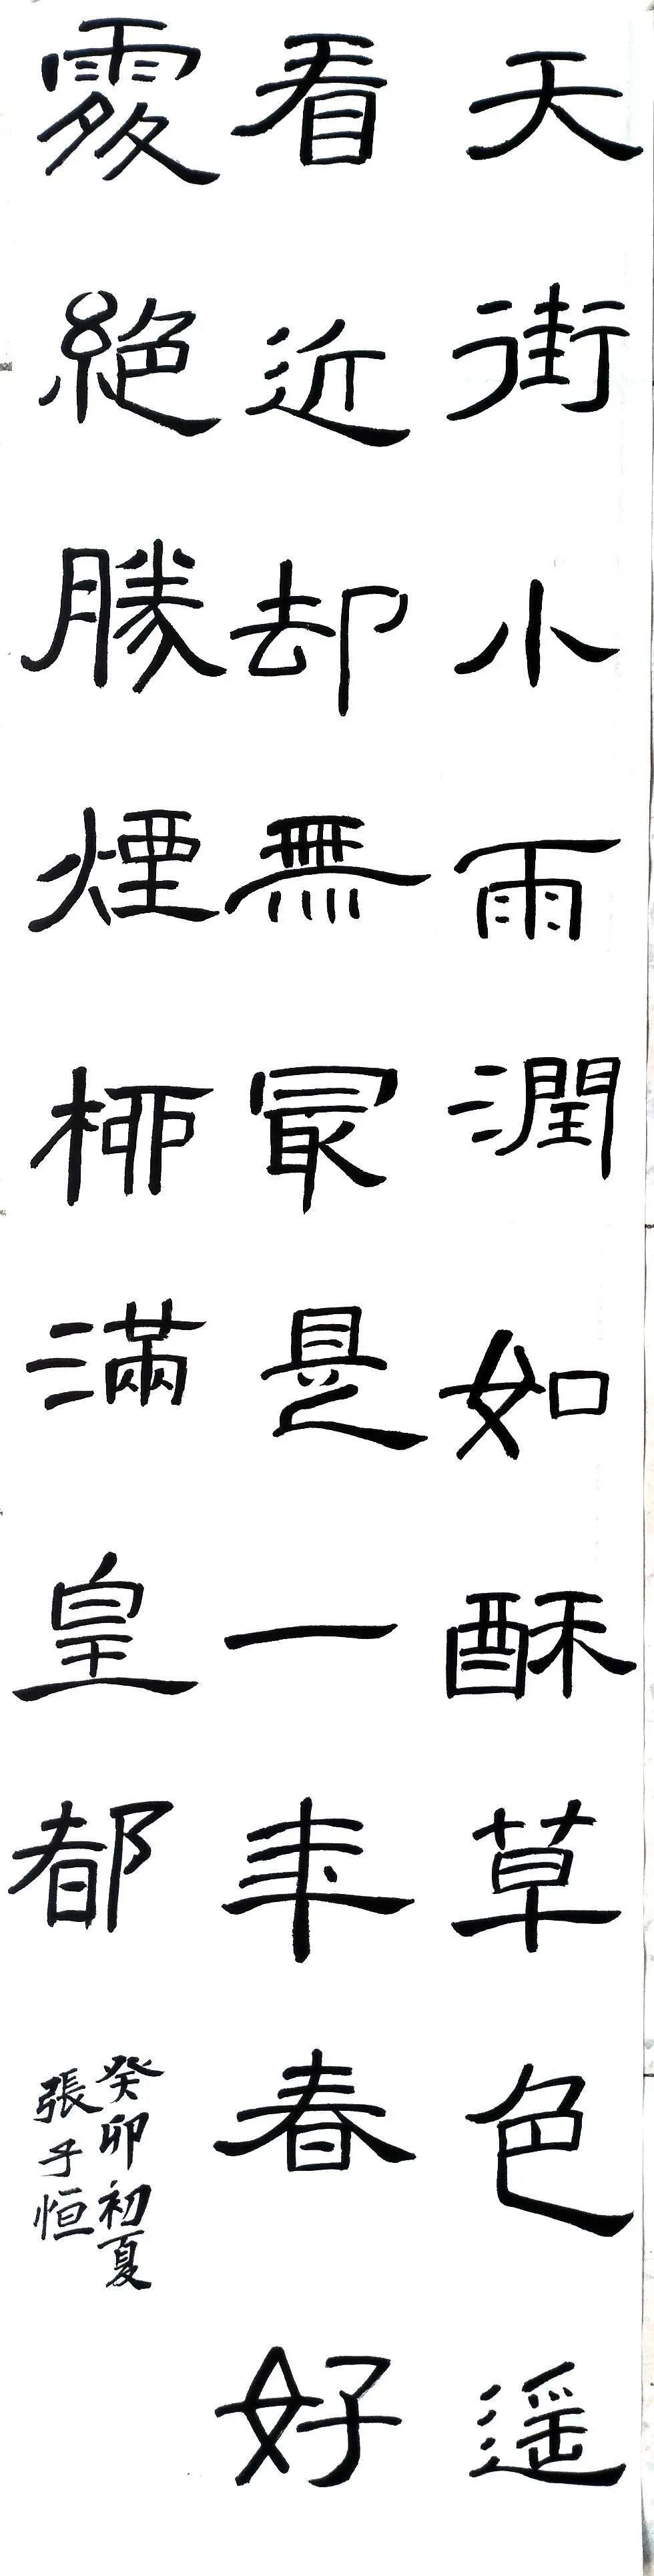 天街小雨潤如酥草色遥
看近却無最是一年春好
處絶勝煙柳滿皇都
癸卯初夏
張子恒